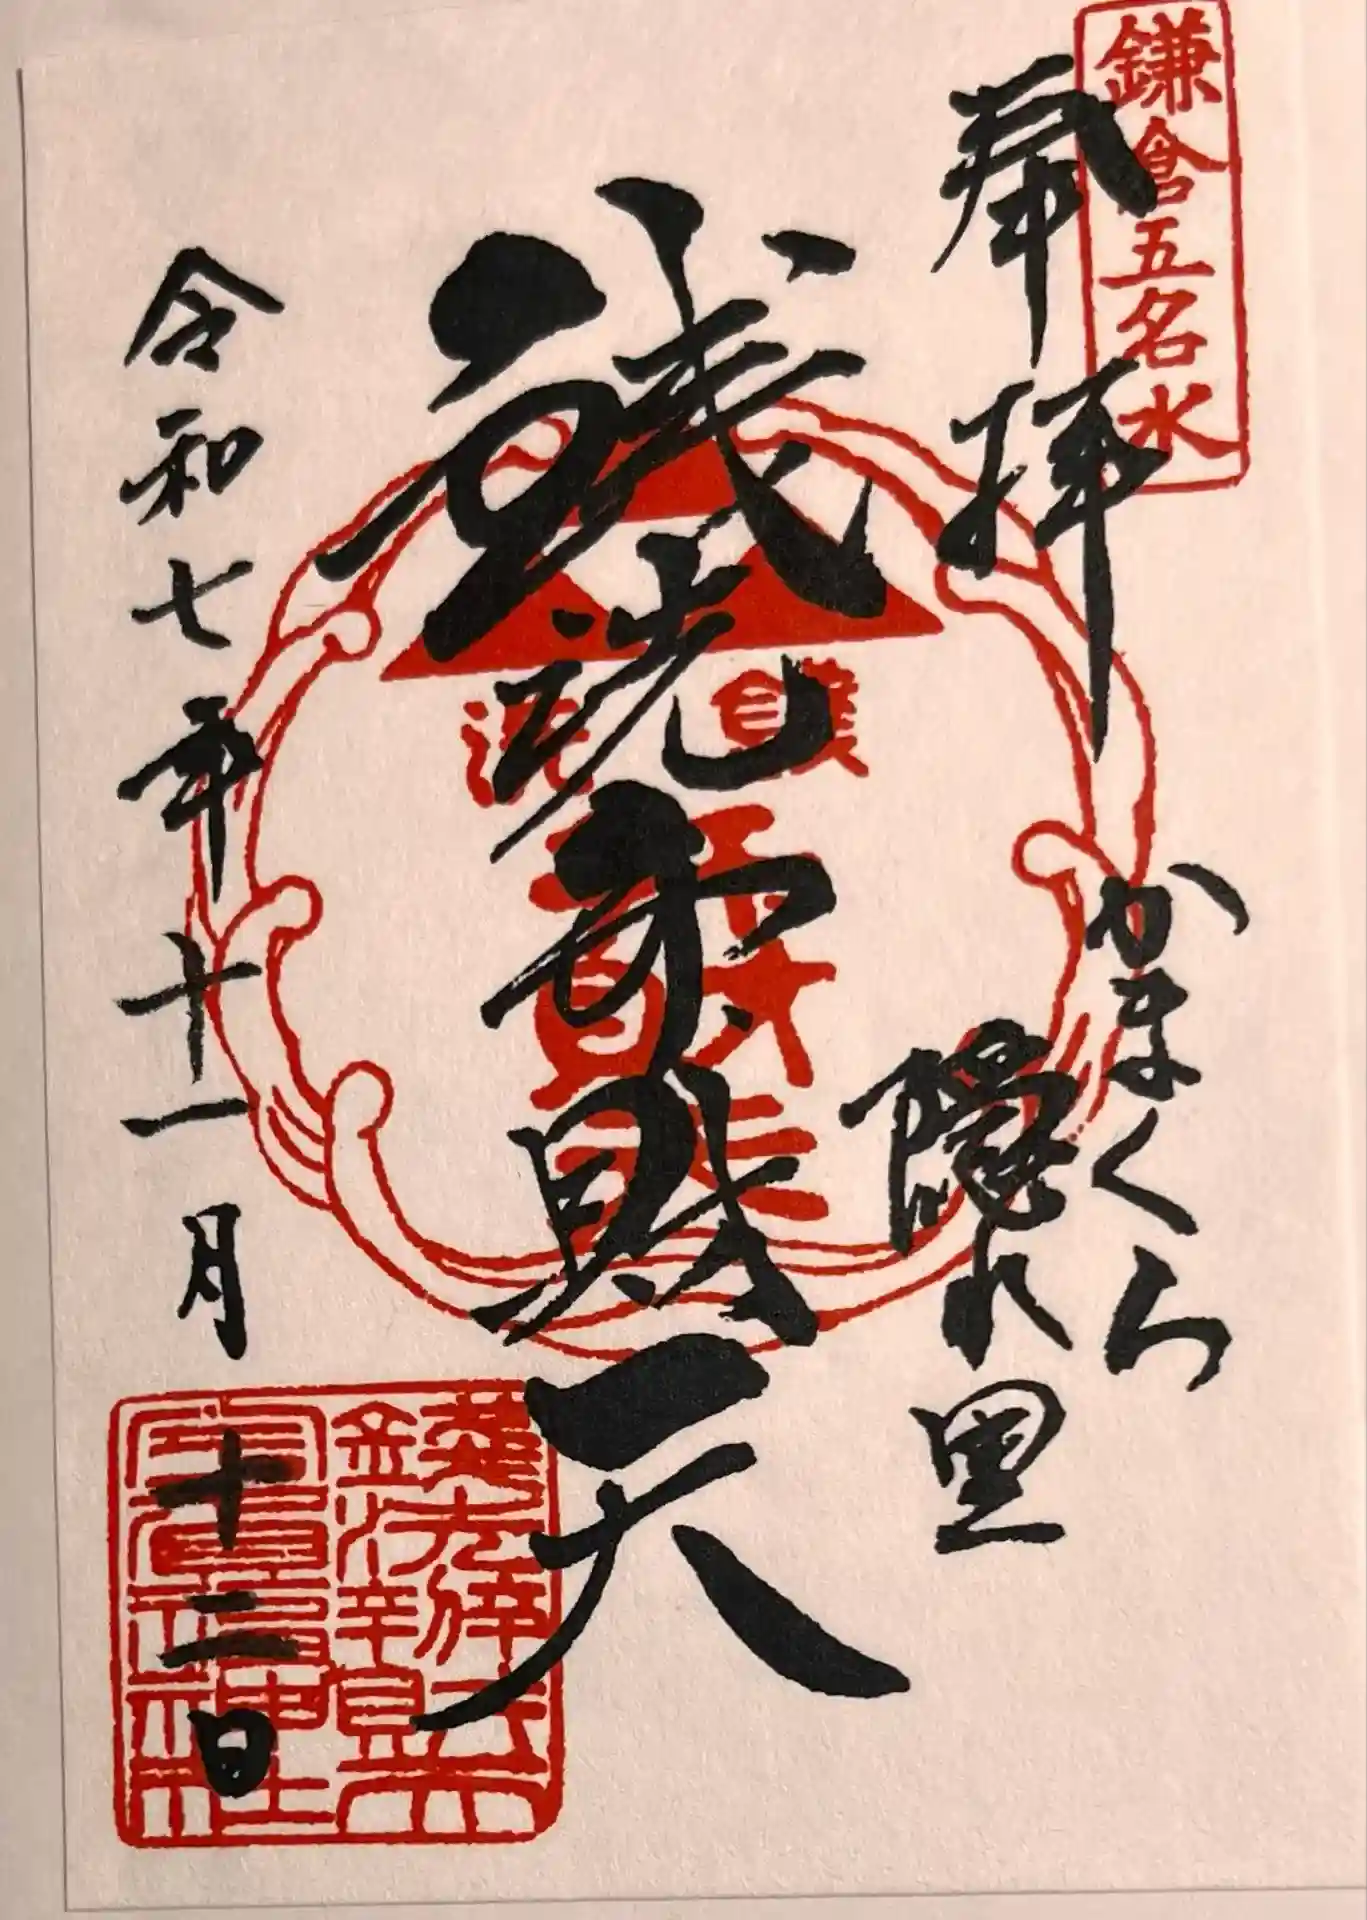 鎌倉五名水
奉拝
かまくら
隠れ里
銭洗弁財天
令和七年十一月十二日
銭洗弁財天
宇賀福神社